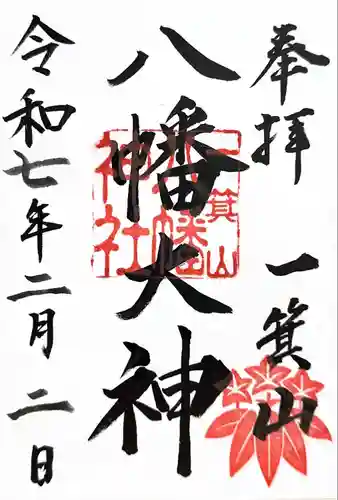 奉拝 一箕山
八幡大神
一箕山八幡神社
令和七年二月二日